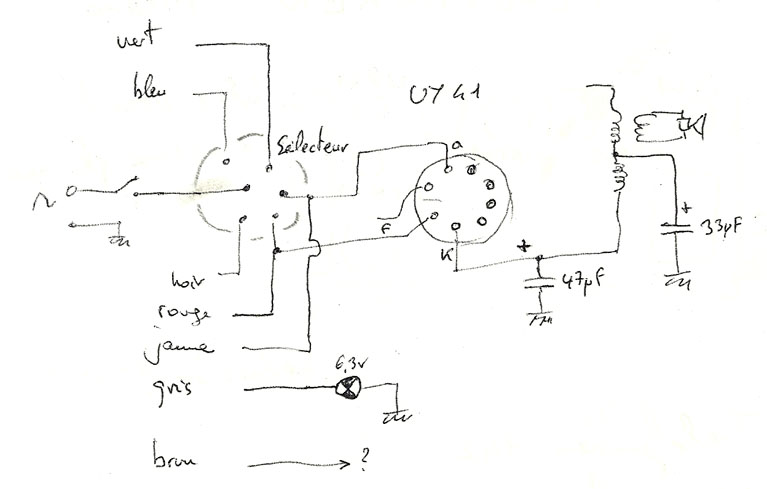 vert
bleu
UY 41
Sélecteur
a
~
F
K
+
+
33µF
47µF
noir
rouge
jaune
6,3v
gris
brun
?